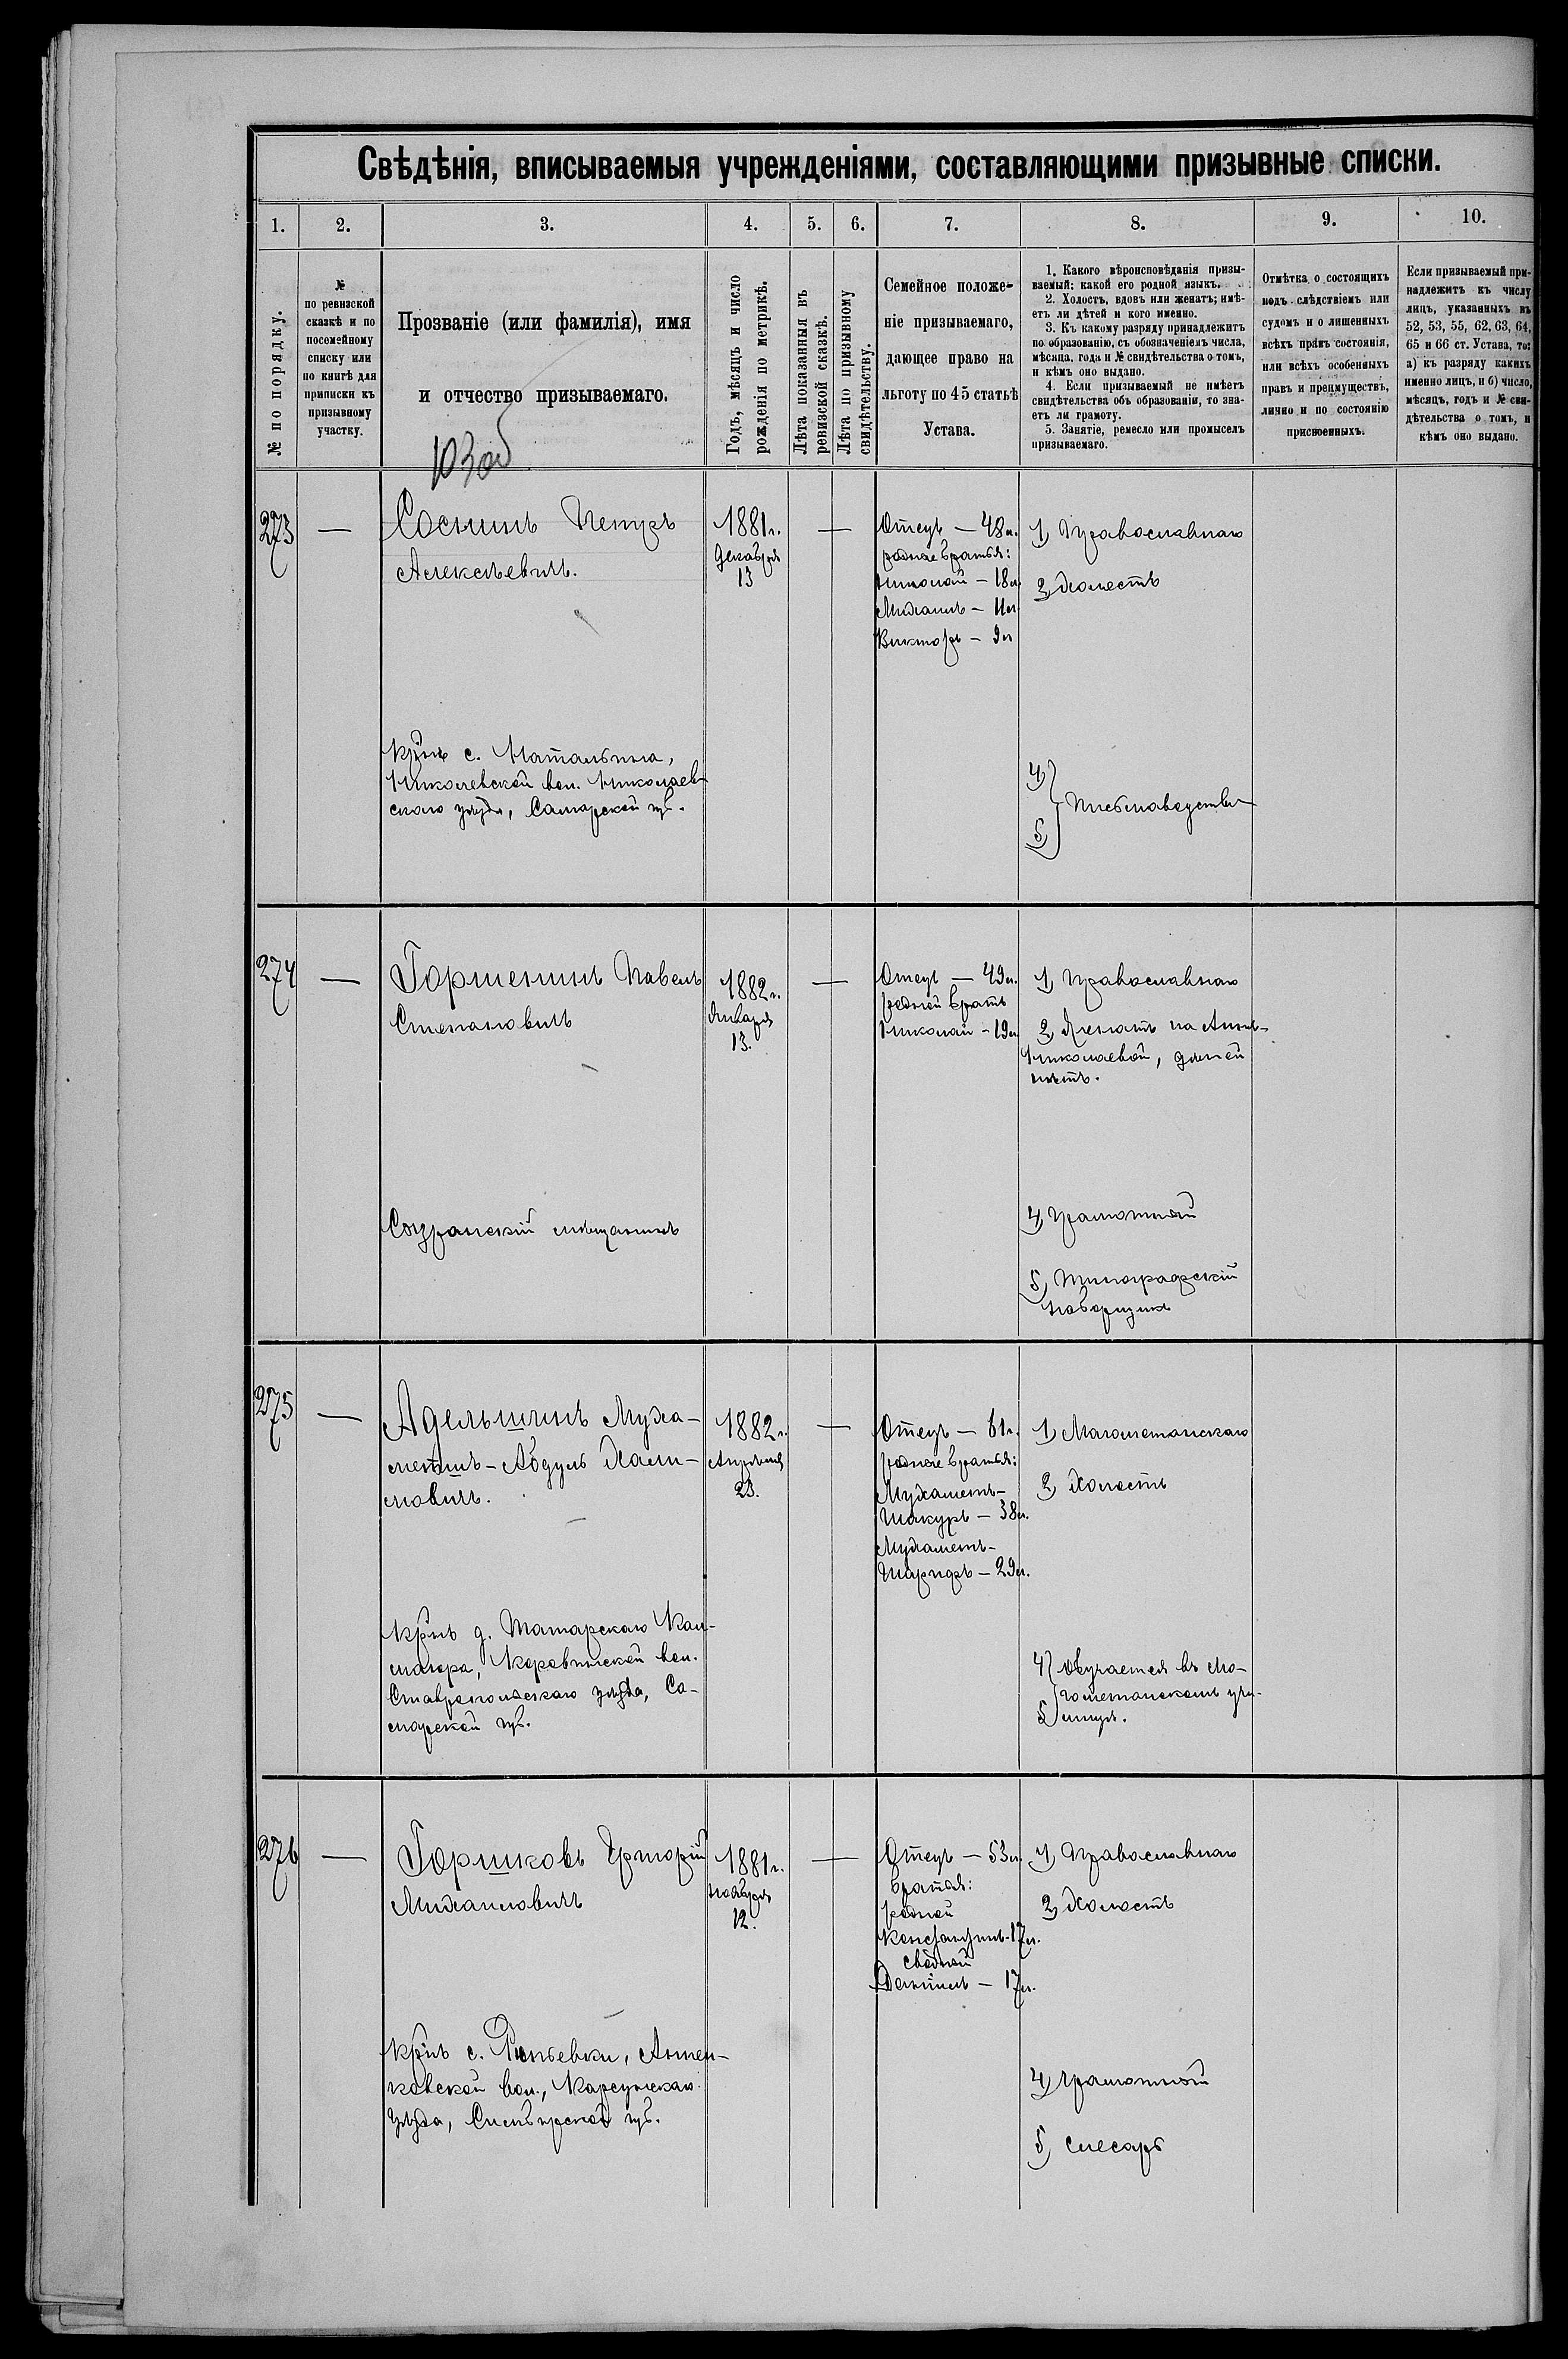 Свѣдѣнія, вписываемыя учрежденіями, составляющими призывные списки.
1. 2. 3. 4. 5. 6. 7. 8. 9. 10.
№ по порядку.
№
по ревизской
сказкѣ и по
посемейному
списку или
по книгѣ для
приписки къ
призывному
участку.
Прозваніе (или фамилія), имя
и отчество призываемаго.
Годъ, мѣсяцъ и число
рожденія по метрикѣ.
Лѣта показанныя въ
ревизской сказкѣ.
Лѣта по призывному
свидѣтельству.
Семейное положе-
ніе призываемаго,
дающее право на
льготу по 45 статьѣ
Устава.
1. Какого вѣроисповѣданія призы-
ваемый; какой его родной языкъ.
2. Холостъ, вдовъ или женатъ; имѣ-
етъ ли дѣтей и кого именно.
3. Къ какому разряду принадлежитъ
по образованію, съ обозначеніемъ числа,
мѣсяца, года и № свидѣтельства о томъ,
и кѣмъ оно выдано.
4. Если призываемый не имѣетъ
свидѣтельства объ образованіи, то зна-
етъ ли грамоту.
5. Занятіе, ремесло или промыселъ
призываемаго.
Отмѣтка о состоящихъ
подъ слѣдствіемъ или
судомъ и о лишенныхъ
всѣхъ правъ состоянія,
или всѣхъ особенныхъ
правъ и преимуществъ,
лично и по состоянію
присвоенныхъ.
Если призываемый при-
надлежитъ къ числу
лицъ, указанныхъ въ
52, 53, 55, 62, 63, 64,
65 и 66 ст. Устава, то:
а) къ разряду какихъ
именно лицъ, и б) число,
мѣсяцъ, годъ и № сви-
дѣтельства о томъ, и
кѣмъ оно выдано.
273 —
Соснинъ Петръ
Алексѣевичъ.
Кр̃нъ с. Натальина,
Николаевской вол. Николаев-
скаго уѣзда, Самарской губ.
1881 г.
Декабря
13
—
Отецъ — 48 л.
родные братья:
Николай — 18 л.
Михаилъ — 11 л.
Викторъ — 9 л.
1) Православнаго
2) Холостъ
4)
5) Письмоводство
274 —
Горшенинъ Павелъ
Степановичъ
Сызранскій мѣщанинъ
1882 г.
Января
13.
—
Отецъ — 49 л.
родной братъ
Николай — 19 л.
1) Православнаго
2) Женатъ на Аннѣ
Николаевой, дѣтей
нѣтъ.
4) Грамотный
5) Типографскій
наборщикъ
275 —
Адельшинъ Муха-
метшъ-Абдулъ Хали-
мовичъ.
Кр̃нъ д. Татарскаго Кан-
димира, Коровинской вол.
Ставропольскаго уѣзда, Са-
марской губ.
1882 г.
Апрѣля
23.
—
Отецъ — 61 г.
родные братья:
Мухаметъ-
Шакуръ — 38 л.
Мухаметъ-
Шарифъ — 29 л.
1) Магометанскаго
2) Холостъ
4) Обучается въ Мо-
гометанскомъ учи-
5) лищѣ.
276 —
Горшковъ Григорій
Михаиловичъ
Кр̃нъ с. Рѣпьевки, Аннен-
ковской вол., Карсунскаго
уѣзда, Симбирской губ.
1881 г.
Ноября
12.
—
Отецъ — 53 л.
братья:
родной
Константинъ — 17 л.
сводный
Даніилъ — 17 л.
1) Православнаго
2) Холостъ
4) Грамотный
5) Слесарь